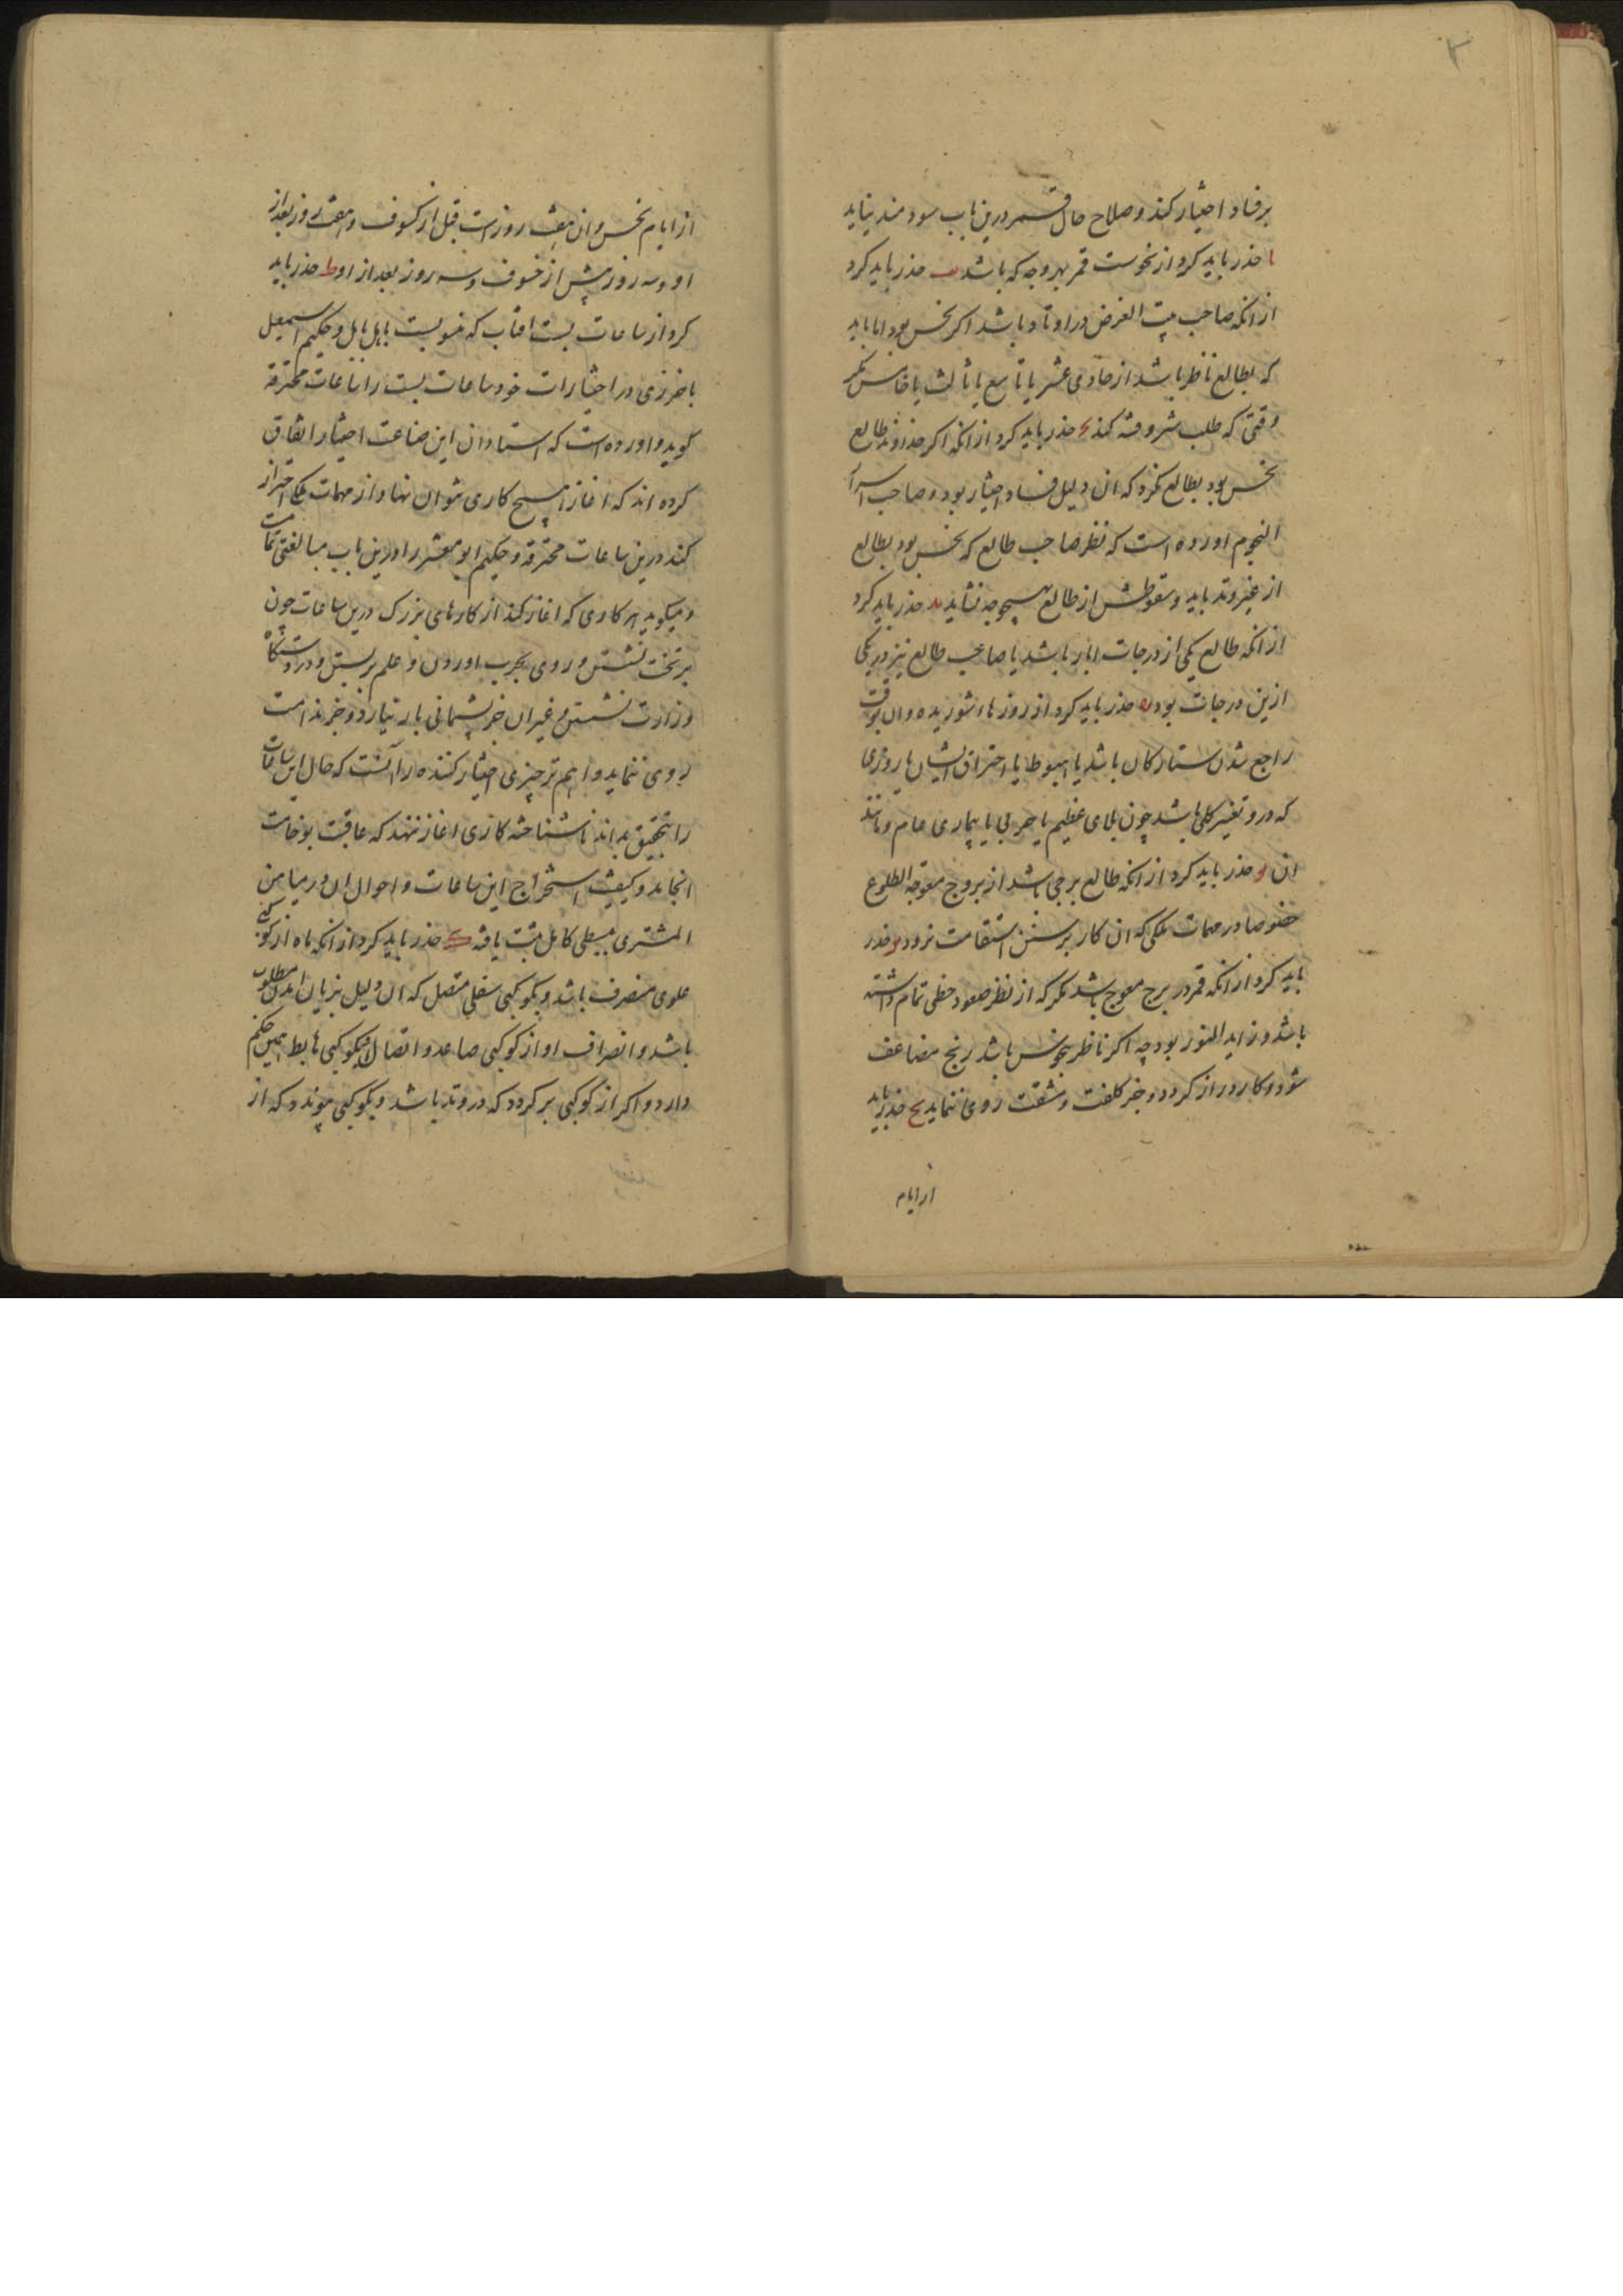 ۲
بر فساد اختیار کند و صلاح حال قمر درین باب سودمند نیاید
یا حذر باید کرد از نحوست قمر بهر وجه که باشد یب حذر باید کرد
از انکه صاحب بیت الغرض در اوتاد باشد اکر نحس بود اما باید
که بطالع ناظر باشد از حادی عشر یا تاسع یا ثالث یا خامس مکر
وقتی که طلب شر و فتنه کند یج حذر باید کرد از انکه اکر خداوند طالع
نحس بود بطالع نکرد که ان دلیل فساد اختیار بود و صاحب اسرار
النجوم اورده است که نظر صاحب طالع که نحس بود بطالع
از غیر وتد باید و سقوطش از طالع بهیچ وجه نشاید ید حذر باید کرد
از انکه طالع یکی از درجات ابار باشد یا صاحب طالع نیز در یکی
ازین درجات بود یه حذر باید کرد از روزهاء شوریده و ان بوقت
راجع شدن ستارکان باشد یا هبوط یا احتراق ایشان یا روزی
که درو تغییر کلی باشد چون بلای عظیم یا حربی یا بیماری عام و مانند
ان یو حذر باید کرد از انکه طالع برجی باشد از بروج معوجة الطلوع
خصوصا در مهمات ملکی که ان کار بر سنن استقامت نرود یز حذر
باید کرد از انکه قمر در برج معوج باشد مکر که از نظر سعود حظی تمام داشته
باشد و زاید النور بود چه اکر ناظر بنحوس باشد رنج مضاعف
شود و کار دراز کردد و جز کلفت و مشقت روی ننماید یح حذر باید
از ایام
از ایام نحس و ان هفت روز است قبل از کسوف و هفت روز بعد از
او و سه روز پیش از خسوف و سه روز بعد از او یط حذر باید
کرد از ساعات بست افتاب که منسوبست باهل بابل و حکیم اسمعیل
باخرزی در اختیارات خود ساعات بست را ساعات محترقه
کوید و اورده است که استادان این صناعت اختیار اتفاق
کرده اند که اغاز هیچ کاری نتوان نهاد و از مهمات ملکی احتراز
کنند درین ساعات محترقه و حکیم ابو معشر را درین باب مبالغتی تمامست
و میکوید هر کاری که اغاز کنند از کارهای بزرک درین ساعات چون
بر تخت نشستن و روی بحرب اوردن و علم بر بستن و در دستکاه
وزارت نشستن و غیر ان جز پشیمانی بار نیارد و جز ندامت
روی ننماید و اهم تر چیزی اختیار کننده را آنست که حال این ساعات
را بتحقیق بداند تا ناشناخته کاری اغاز ننهد که عاقبت بوخامت
انجامد و کیفیت استخراج این ساعات و احوال ان در میامن
المشتری ببسطی کامل ثبت یافته ک حذر باید کرد از انکه ماه از کوکبی
علوی منصرف باشد و بکوکبی سفلی متصل که ان دلیل بزیان امدن مطلوب
باشد و انصراف او از کوکبی صاعد و اتصال او بکوکبی هابط همین حکم
دارد و اکر از کوکبی بر کردد که در وتد باشد و بکوکبی پیوندد که از